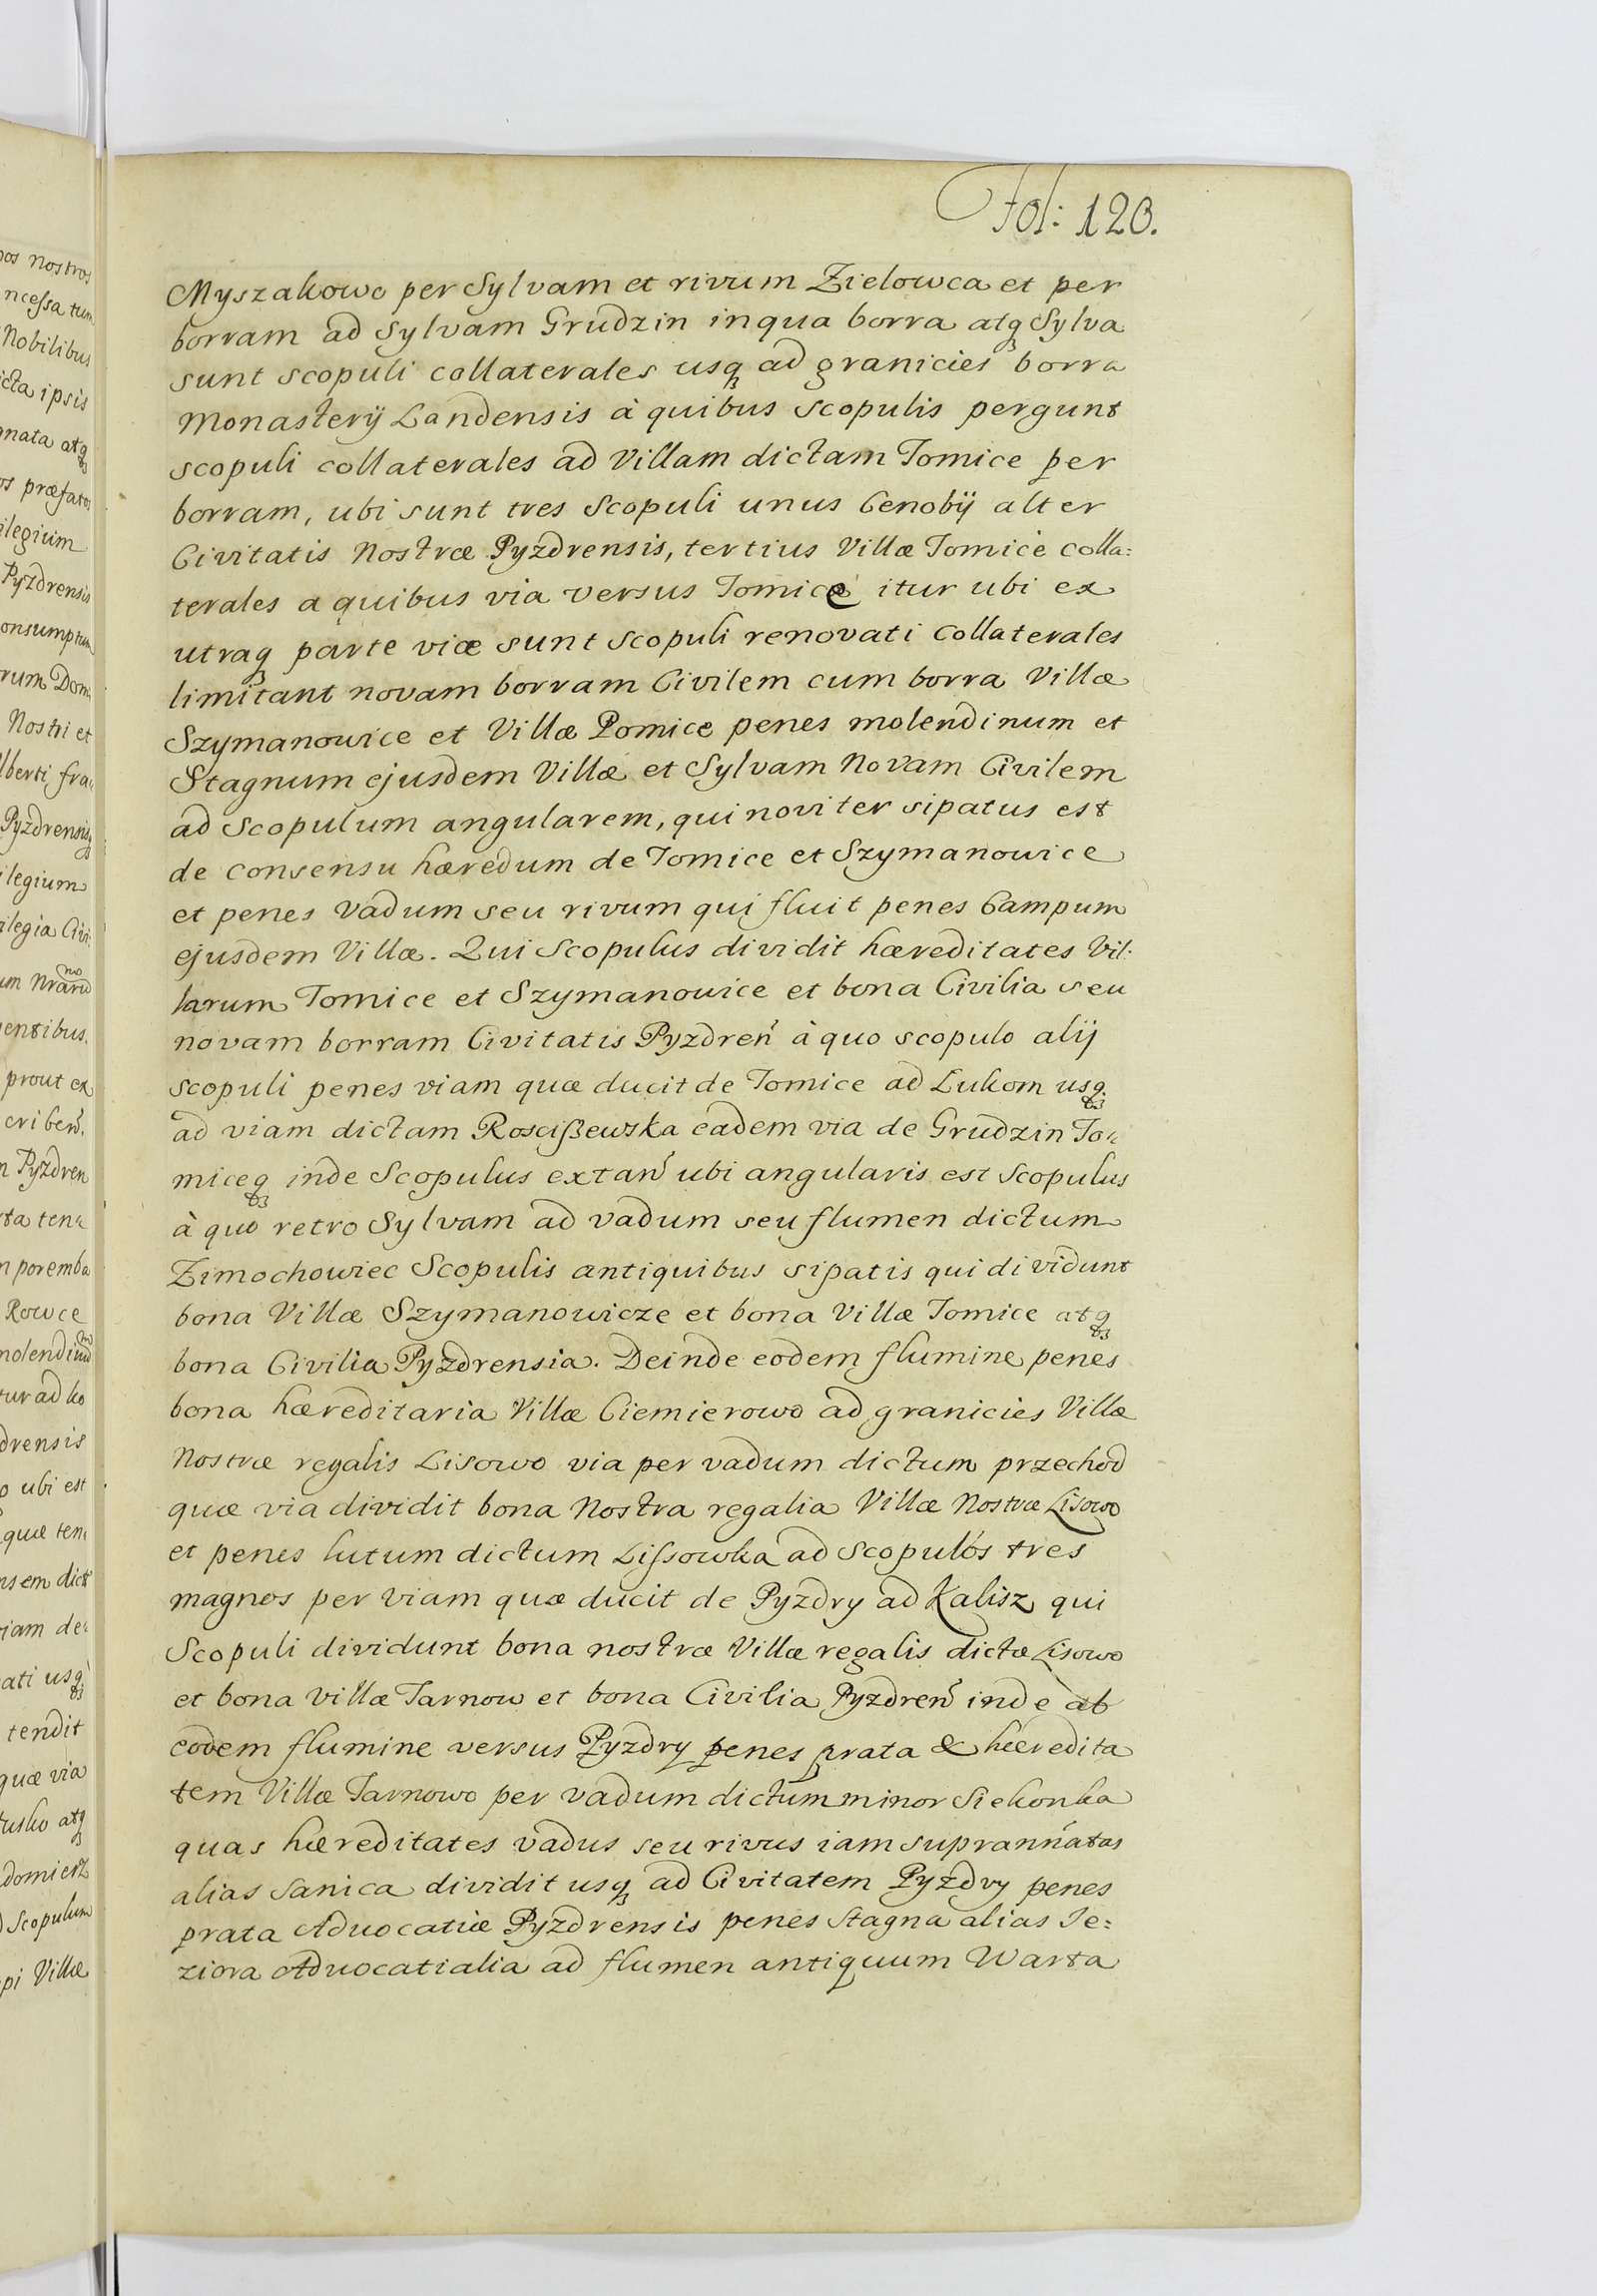 Fol: 120.
Myszakowo per Sylvam et rivum Zielowca et per
borram ad Sylvam Grudzin in qua borra atq₃ Sylva
sunt scopuli collaterales usq₃ ad granicies borra
Monasterij Landensis à quibus scopulis pergunt
scopuli collaterales ad Villam dictam Tomice per
borram, ubi sunt tres Scopuli unus Cenobij alter
Civitatis Nostræ Pyzdrensis, tertius Villæ Tomice colla:
terales a quibus via versus Tomice itur ubi ex
utraq₃ parte viæ sunt scopuli renovati collaterales
limitant novam borram Civilem cum borra Villæ
Szymanowice et Villæ Pomice penes molendinum et
Stagnum ejusdem Villæ et Sylvam Novam Civilem
ad Scopulum angularem, qui noviter sipatus est
de consensu hæredum de Tomice et Szymanowice
et penes Vadum seu rivum qui fluit penes Campum
ejusdem Villæ. Qui Scopulus dividit hæreditates Vil:
larum Tomice et Szymanowice et bona Civilia seu
novam borram Civitatis Pyzdreń à quo scopulo alij
scopuli penes viam quæ ducit de Tomice ad Lukom usq₃
ad viam dictam Roscißewska eadem via de Grudzin To:
miceq₃ inde Scopulus extań ubi angularis est Scopulus
à quo retro Sylvam ad vadum seu flumen dictum
Zimochowiec Scopulis antiquibus sipatis qui dividunt
bona Villæ Szymanowicze et bona Villæ Tomice atq₃
bona Civilia Pyzdrensia. Deinde eodem flumine penes
bona hæreditaria Villæ Ciemierowo ad granicies Villæ
Nostræ regalis Lisowo via per vadum dictum przechod
quæ via dividit bona Nostra regalia Villæ Nostræ Lisowo
et penes lutum dictum Lissowka ad Scopulós tres
magnos per viam quæ ducit de Pyzdry ad Kalisz qui
Scopuli dividunt bona nostræ Villæ regalis dictæ Lisowo
et bona villæ Tarnow et bona Civilia Pyzdreń inde ab
eodem flumine versus Pyzdry penes prata & hæredita
tem Villæ Tarnowo per vadum dictum minor Siekonka
quas hæreditates vadus seu rivus iam suprańnatas
alias Sanica dividit usq₃ ad Civitatem Pyzdry penes
prata Advocatiæ Pyzdrensis penes Stagna alias Je:
ziora Advocatialia ad flumen antiquum Warta